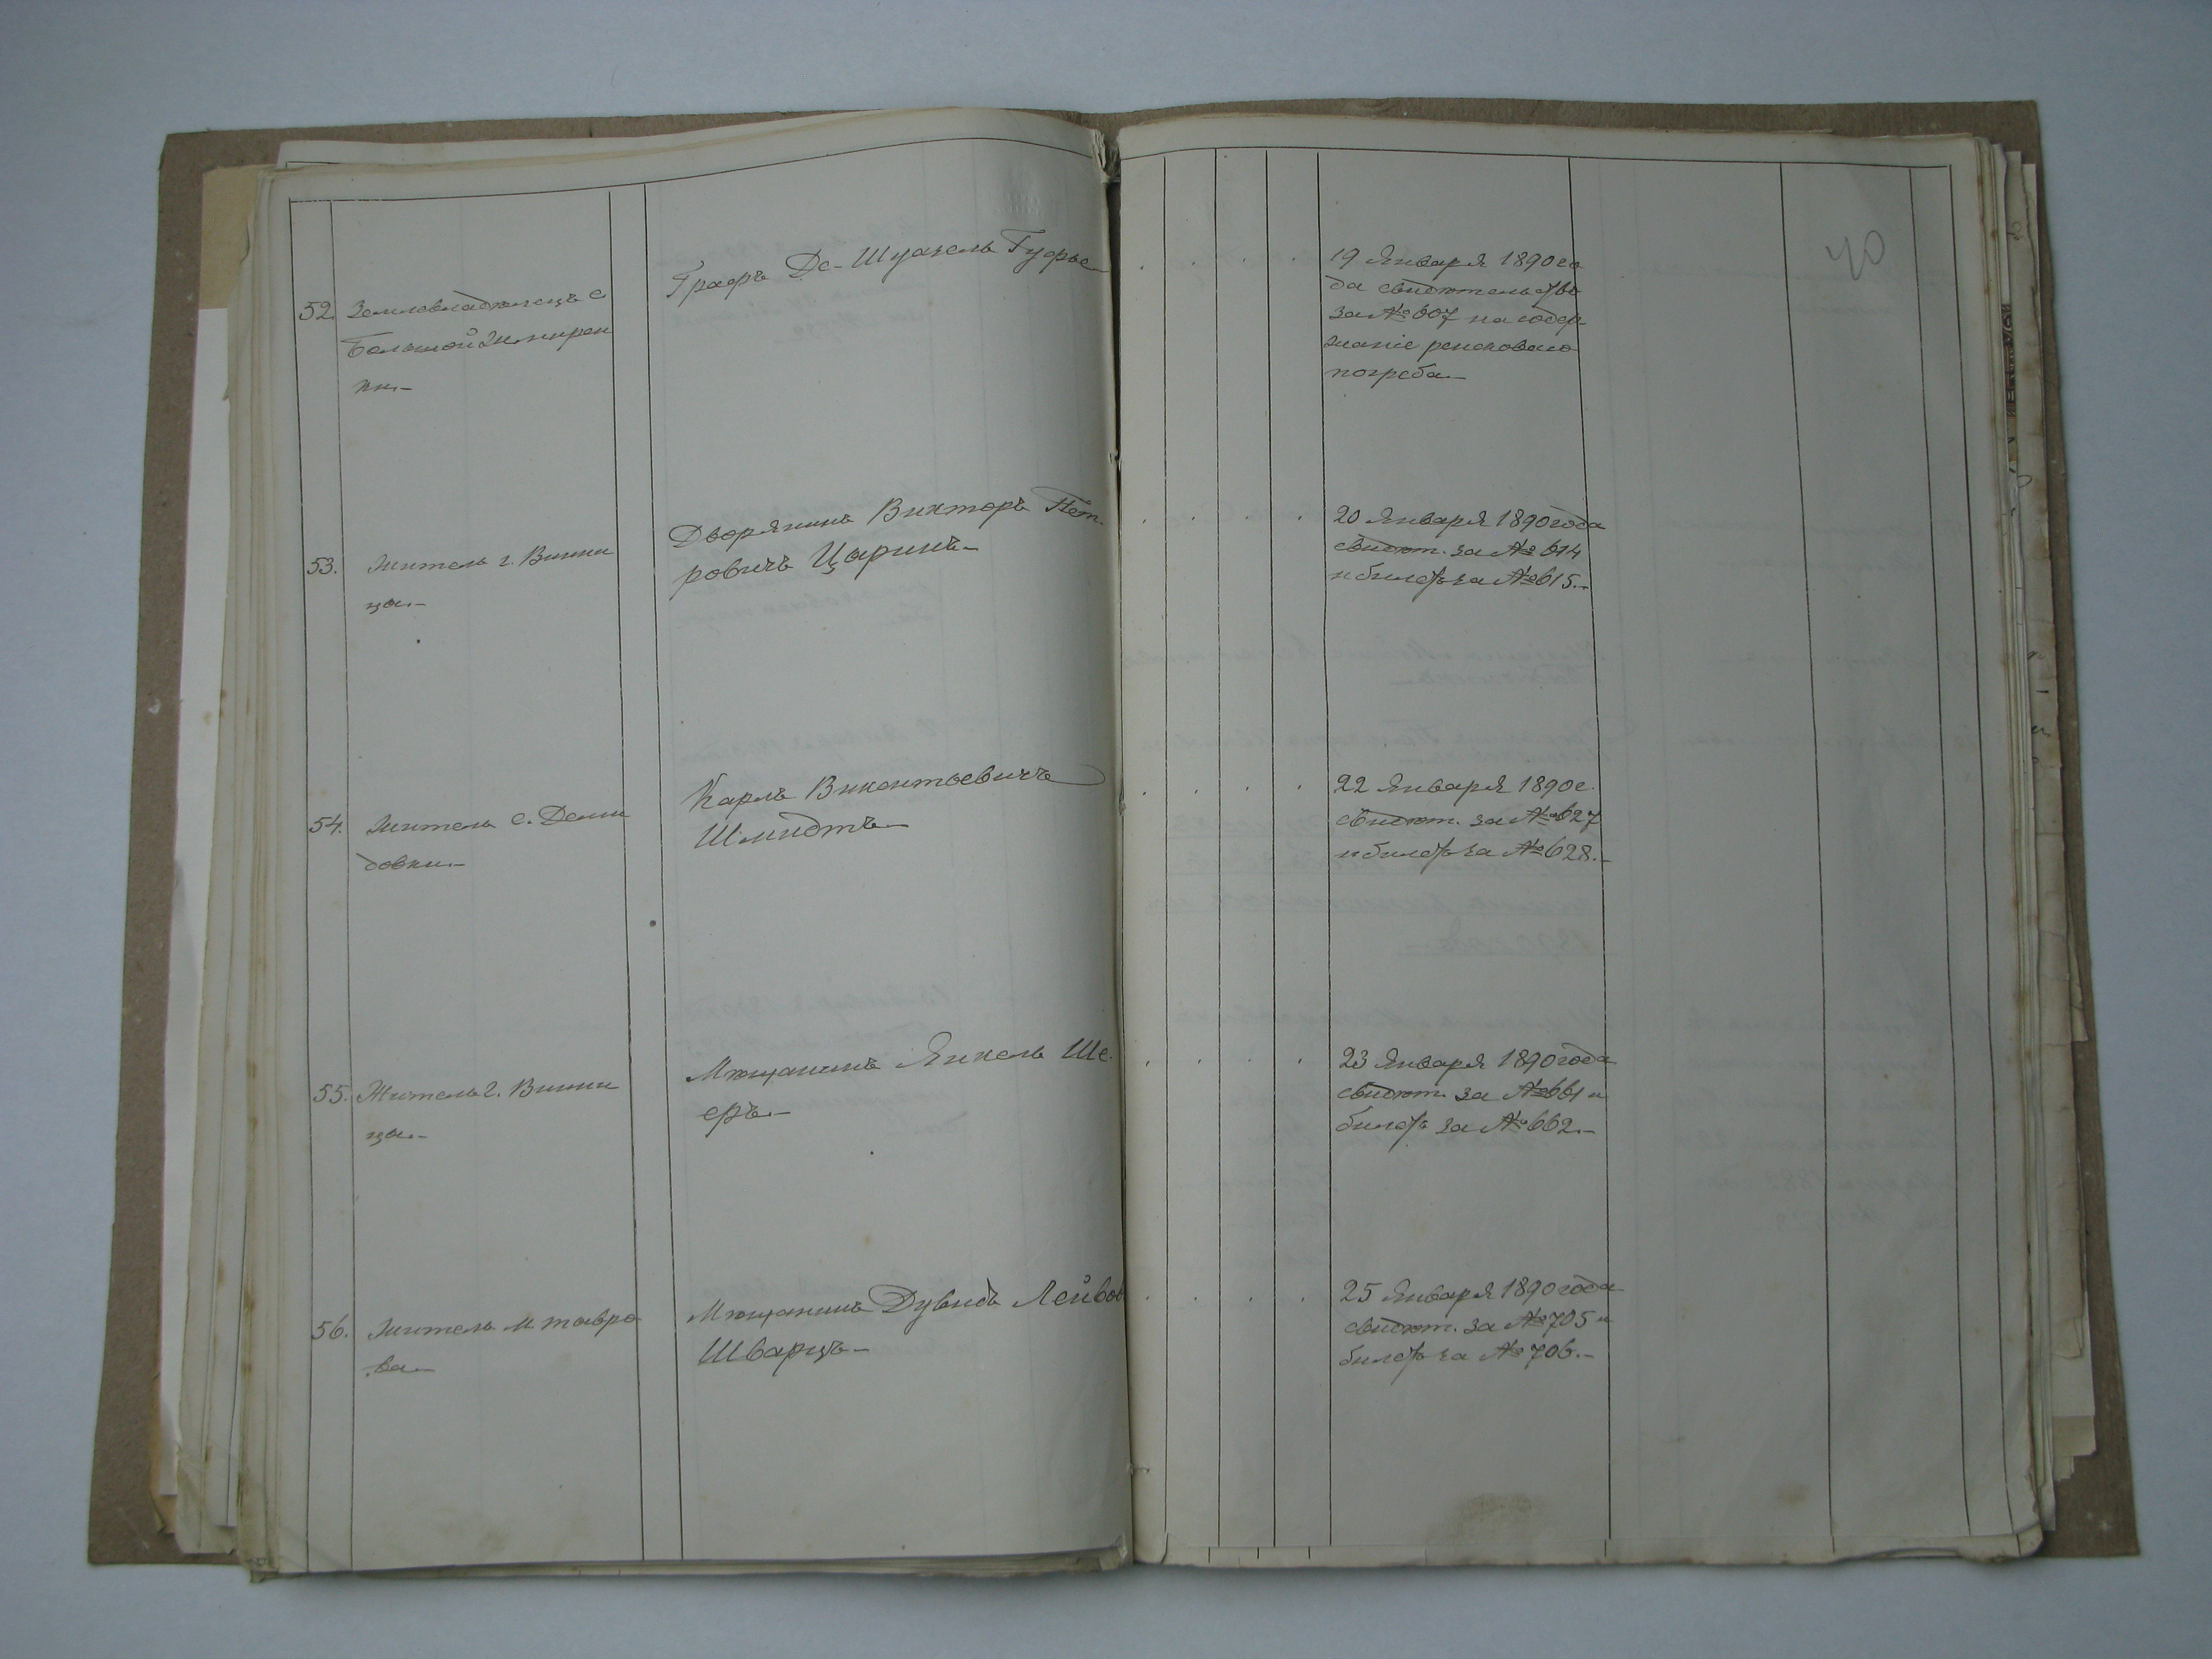 40
52. Землевладѣлецъ с.
Большой Жмерин
ки.-
Графъ Де-Шуазель Гуфье
19 Января 1890 го
да свидѣтельство
за № 607 на содер-
жаніе ренсковаго
погреба.-
53. Житель г. Винни
цы.-
Дворянинъ Викторъ Пет-
ровичъ Царинъ.-
20 Января 1890 года
свидѣт. за № 614
и билетъ за № 615.-
54. Житель с. Деми
довки.-
Карлъ Викентьевичъ
Шмидтъ.-
22 Января 1890 г.
свидѣт. за № 627
и билетъ за № 628.-
55. Житель г. Винни
цы.-
Мѣщанинъ Янкель Ше-
еръ.-
23 Января 1890 года
свидѣт. за № 661 и
билетъ за № 662.-
56. Житель м.
ва.-
Мѣщанинъ Дувидъ Лейбов
Шварцъ.-
25 Января 1890 года
свидѣт. за № 705 и
билетъ за № 706.-